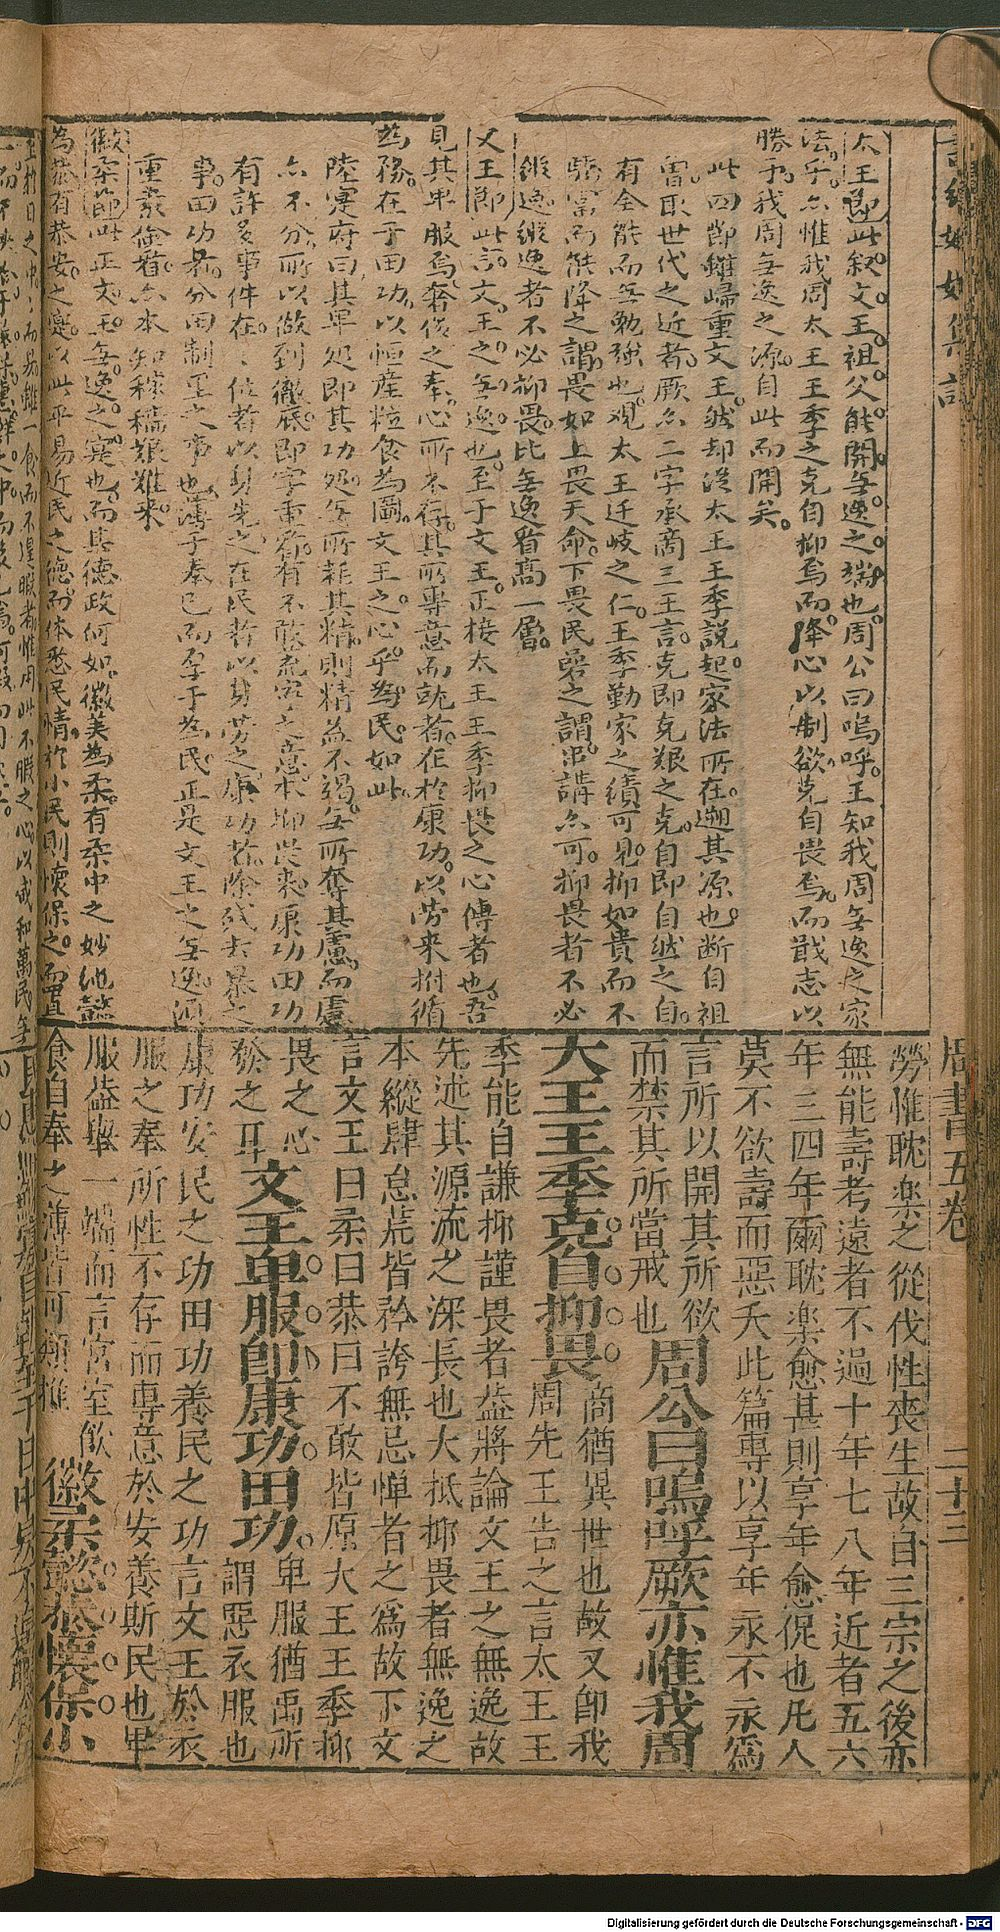 周書五卷 二十三
太王節此叙文王祖父能開無逸之端也周公曰嗚呼王知我周無逸之家
法乎亦惟我周太王王季之克自抑焉而降心以制欲克自畏焉而戢志以
勝予我周無逸之源自此而開矣
此四節雖歸重文王然却從太王王季說起家法所在遡其源也斷自祖
胄取世代之近者厥亦二字承商三王言克即克艱之克自即自然之自
有全能而無勉強也观太王迁岐之仁王季勤家之績可見抑如貴而不
驕富而能降之謂畏如上畏天命下畏民碞之謂串講亦可抑畏者不必
縱逸縱逸者不必抑畏比無逸看高一層
文王節此言文王之無逸也至于文王正接太王王季抑畏之心傳者也吾
見其卑服焉奢侈之奉心所不存其所專意而就者在於康功以勞来拊循
為務在于田功以恒産粒食為圖文王之心乎為民如此
陸寔府曰其卑処即其功処無所耗其精則精益不竭無所奪其慮而慮
亦不分所以做到徹底即字重看有不敢荒寧之意本抑畏来康功田功
有許多事件在在位者以身先之在民者以身劳之康功若除残去暴之
事田功若分田制里之事也薄于奉己而厚于為民正是文王之無逸須
重素儉着亦本知稼穡艱難来
徽柔節此正文王無逸之寔也而其德政何如徽美為柔有柔中之妙他懿
為恭有恭安之寔以此平易近民之德而体悉民情於小民則懷保之而置
勞惟耽楽之從伐性喪生故自三宗之後亦
無能壽考遠者不過十年七八年近者五六
年三四年爾耽楽愈甚則享年愈促也凡人
莫不欲壽而惡夭此篇專以享年永不永為
言所以開其所欲
而禁其所當戒也 周公曰嗚呼厥亦惟我周
大王王季克自抑畏 商猶異世也故又即我
周先王告之言太王王
季能自謙抑謹畏者盖將論文王之無逸故
先述其源流之深長也大抵抑畏者無逸之
本縱肆怠荒皆矜誇無忌憚者之爲故下文
言文王曰柔曰恭曰不敢皆原大王王季抑
畏之心
發之耳 文王卑服即康功田功 卑服猶禹所
謂惡衣服也
康功安民之功田功養民之功言文王於衣
服之奉所性不存而專意於安養斯民也卑
服盖舉一端而言宮室飲
食自奉之薄皆可類推 徽柔懿恭懷保小
Digitalisierung gefördert durch die Deutsche Forschungsgemeinschaft - DFG